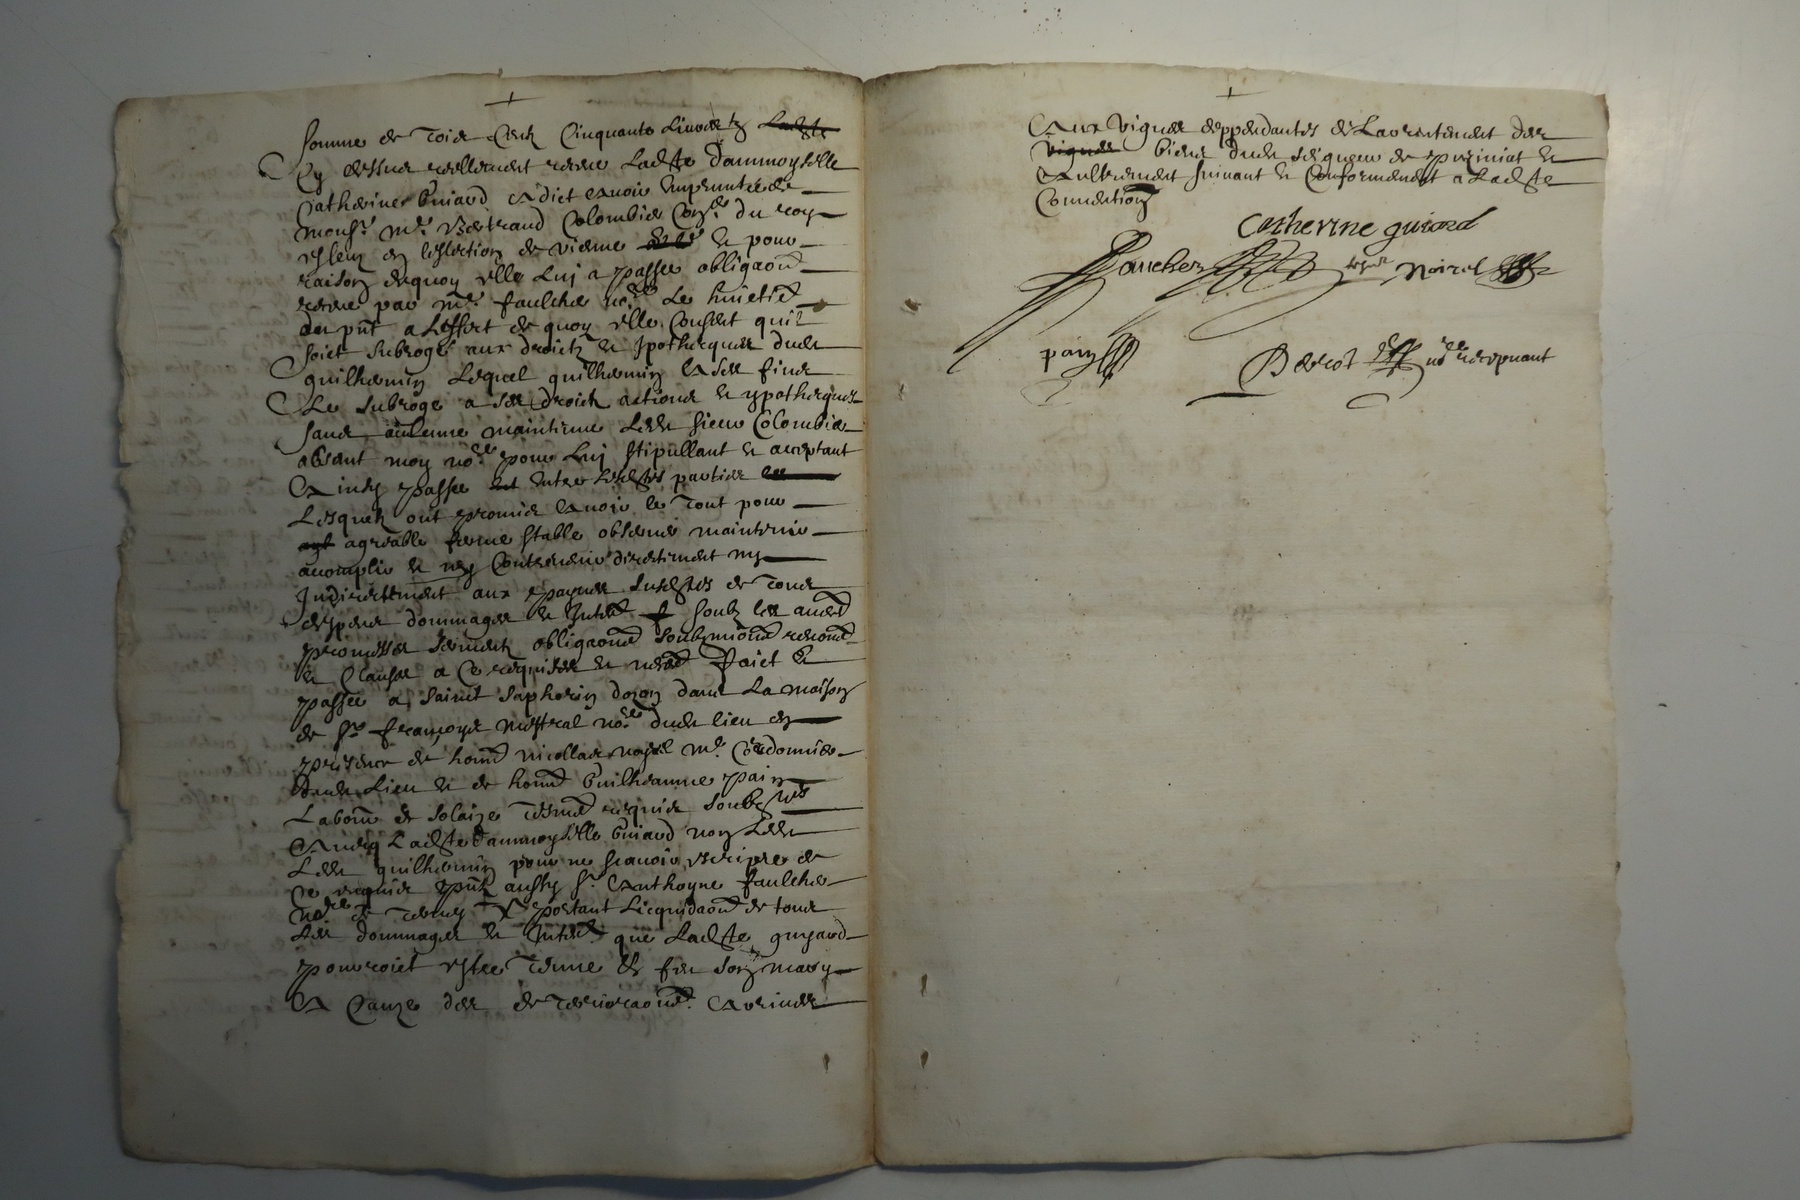 somme de trois Centz Cinquante Livres tz Ladte
Cy dessus reellement receue Ladte dammoyselle
Catherine Guiard a dict avoir Empruntée de
monsr. mr. Bertrand Colombier Conser. du roy
esleuz en leslection de vienne et pour
raison dequoy elle Luj a passée obligaon
receue par mr. faulcher nore. Le huictie
du pnt a Leffect de quoy elle Consent quil
soict Subrogé aux droictz et ypothecques dudt
guilhermin Lequel guilhermin a ses fins
Le Subroge a ses droictz actions et ypothecques
sans aulcune maintenue Ledt sieur Colombier
absant moy nore. pour Luj stipullant et acceptant
Ainsy passé Entre Lesdtes parties
Lesquelz ont promis avoir le Tout pour
agreable ferme stable observer maintenir
acomplir et ny Contrevenir directement ny
Indirectement aux peynes Susdtes de Tous
despens dommages et Interestz soubz les aues
promesses sermentz obligaons soubzmions renons
et Clauses a Ce requises et neces faict et
passé a Sainct Saphorin dozon dans La maison
de sr. françoys mestral nore. dudt lieu en
presence de honn nicollas noyrel mr. Cordonnier
dudt Lieu et de honn Guilheaume pain
Labour de solaize Tesmoingz requis soubznes
Avecq Ladte dammoyselle Guiard non Ledt
Ledt guilhermin pour ne scavoir escripre de
ce requis pntz aussy sr. Anthoyne faulcher
nore de Ternay X portant Licquidaon de tous
Les dommages et Interestz que Ladte guyard
pourroict estre Tenue et feu son mary
A Cause des de Teriorations Arivees
Aux vignes deppendantes de Lavortement des
vignes biens dudt seigneur de et
Aultrement suivant et Conformement a Ladte
Convention
Catherine guiard
faucher Noirel
pain
Bercot nore recepvant